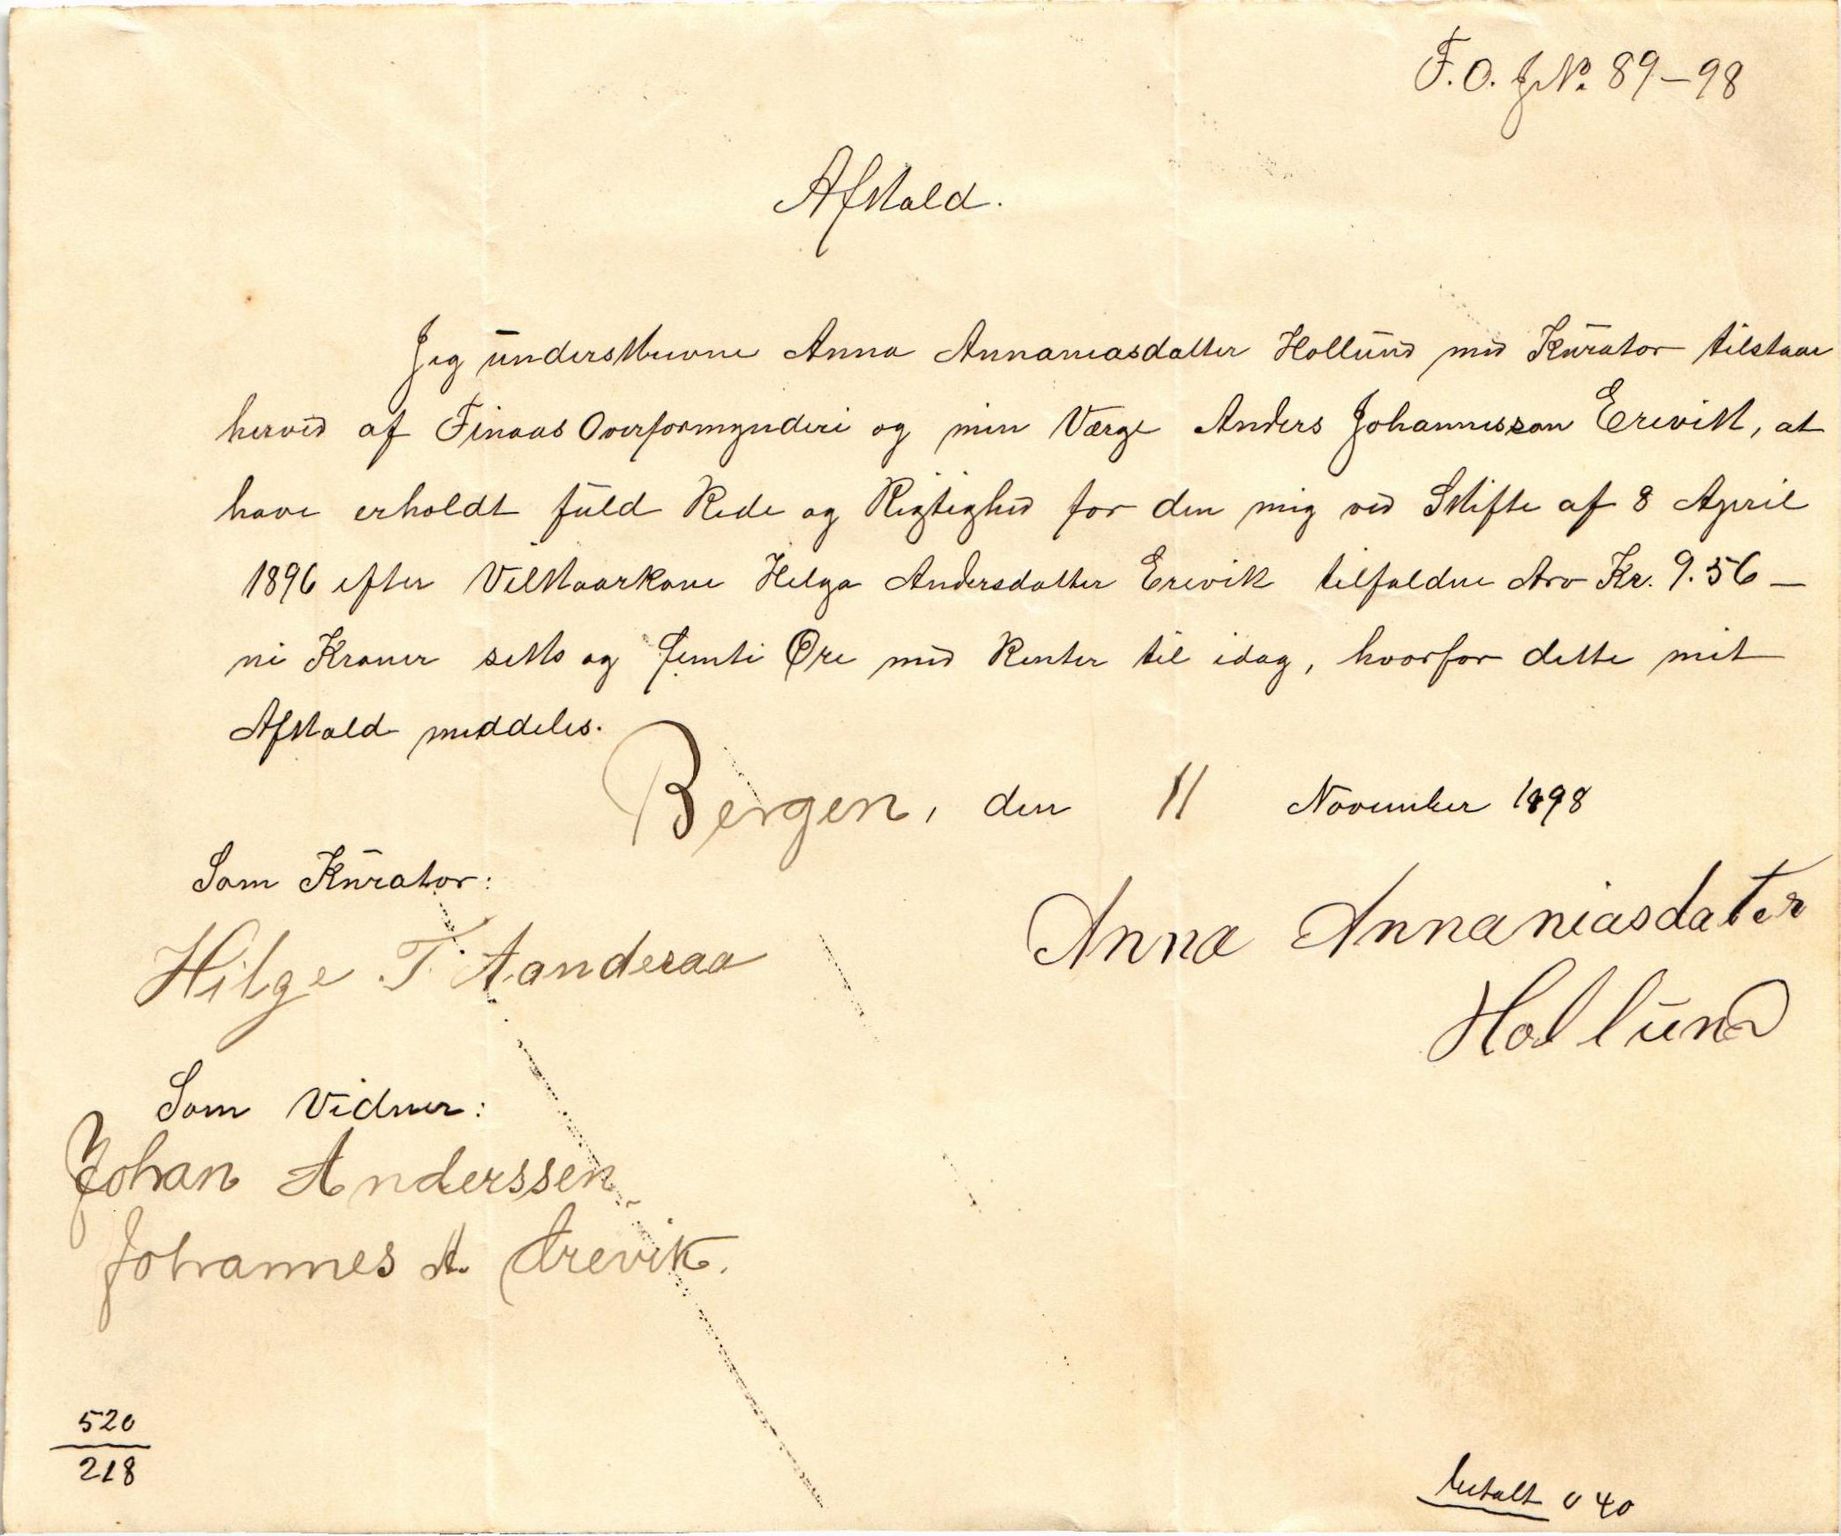 F. O. J No. 89-98
Afkald.
Jeg underskrevne Anna Annaniasdatter Hollund med Kurator tilstaar
herved af Finaas Overformynderi og min Værge Anders Johannesson Erevik, at
have erholdt fuld Rede og Rigtighed for den mig ved Skifte af 8 April
1896 efter Vilkaarkone Helga Andersdatter Erevik tilfaldne Arv Kr. 9.56 —
ni Kroner seks og femti Øre med Renter til idag, hvorfor dette mit
Afkald meddeles.
Bergen, den 11 November 1898
Som Kurator:
Hilge T. Aanderaa
Anna Annaniasdater
Hollund
Som Vidner:
Johan Anderssen
Johannes A. Erevik.
520
218
betalt 0 40